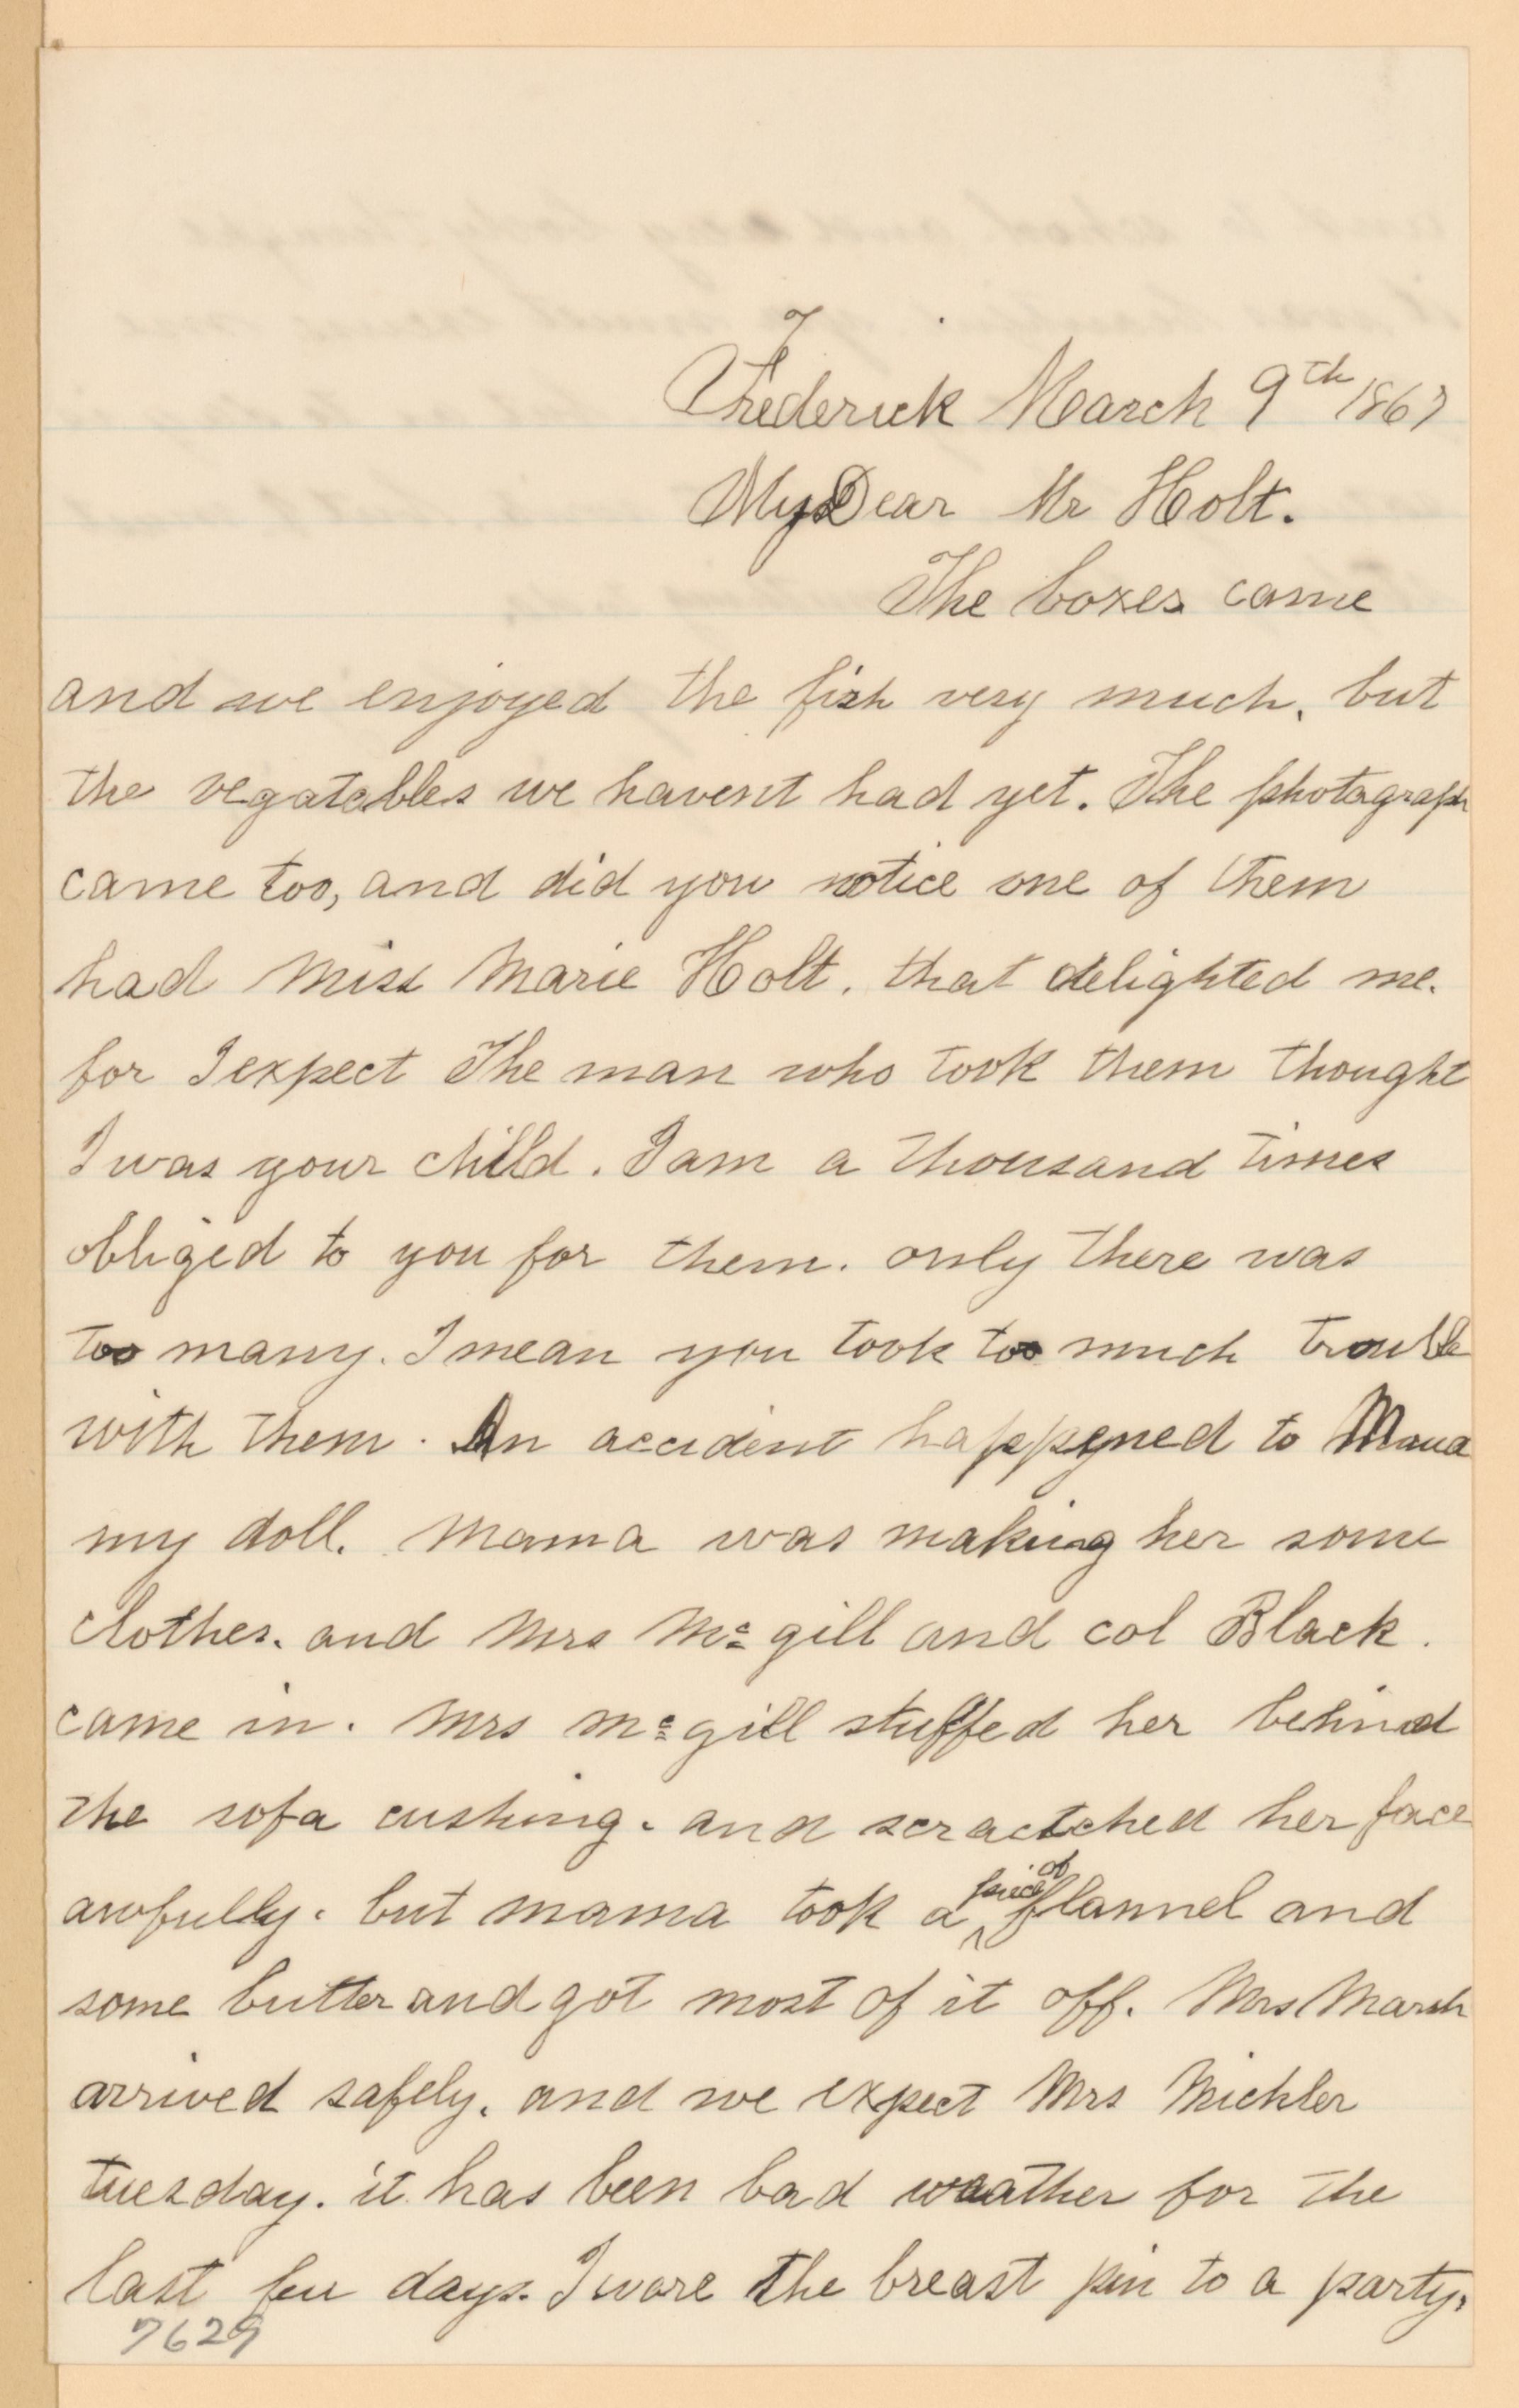 Frederick March 9th 1867
My Dear Mr Holt.
The boxes came
and we enjoyed the fish very much, but
the vegatables we havent had yet. The photagraph
came too, and did you notice one of them
had Miss Marie Holt. that delighted me.
for I expect The man who took them thought
I was your child. I am a thousand times
obliged to you for them. only there was
too many. I mean you took too much trouble
with them. An accident happened to
my doll. Mama was making her some
clothes. and Mrs Mc gill and col Black.
came in. Mrs Mc gill stuffed her behind
the sofa cushing. and scractched her face
awfully. but mama took a piece of flannel and
some butter and got most of it off. Mrs Marsh
arrived safely. and we expect Mrs Michler
tuesday. it has been bad weather for the
last few days. I wore the breast pin to a party.
7629